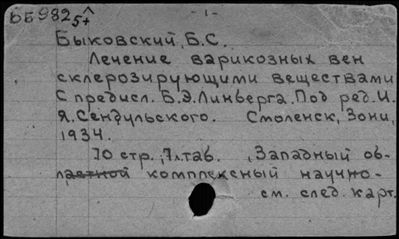 ьБ9825^
5+
- 1 -
Быковский, Б.С.
Лечение варикозных вен
склерозирующими веществами
С предисл. Б.Э.Линберга. Под ред. И.
Я.Сендульского. Смоленск, Зони,
1934.
70 стр., 7л.таб. , Западный об-
ластной комплексный научно-
см. след. карт.